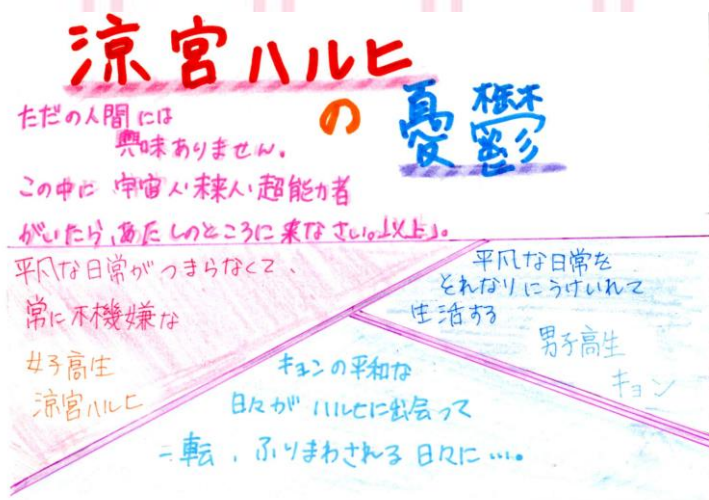 涼宮ハルヒ
の憂鬱
ただの人間には
興味ありません。
この中に宇宙人・未来人・超能力者
がいたら、あたしのところに来なさい。以上」。
平凡な日常がつまらなくて、
常に不機嫌な
女子高生
涼宮ハルヒ
平凡な日常を
それなりにうけいれて
生活する
男子高生
キョン
キョンの平和な
日々がハルヒに出会って
一転、ふりまわされる日々に…。